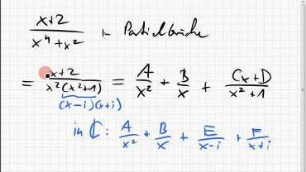 x+2 / x⁴+x² in Partialbrüche
= x+2 / x²(x²+1) = A/x² + B/x + Cx+D / x²+1
(x-i)(x+i)
in ℂ: A/x² + B/x + E/x-i + F/x+i